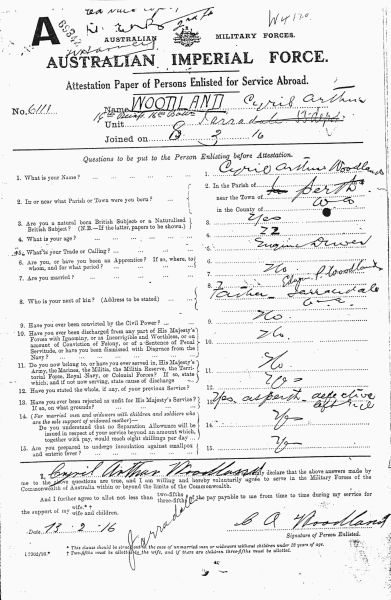 A
AUSTRALIAN MILITARY FORCES.
AUSTRALIAN IMPERIAL FORCE.
Attestation Paper of Persons Enlisted for Service Abroad.
No. 6111 Name WOODLAND Cyril Arthur
Unit
Joined on 13 2 16
Questions to be put to the Person Enlisting before Attestation.
1. What is your Name? 1. Cyril Arthur Woodland
2. In or near what Parish or Town were you born? 2. In the Parish of
near the Town of Perth
in the County of W A
3. Are you a natural born British Subject or a Naturalised British Subject? (N.B.—If the latter, papers to be shown.) 3. Yes
4. What is your age? 4. 22
5. What is your Trade or Calling? 5. Engine Driver
6. Are you, or have you been an Apprentice? If so, where, to whom, and for what period? 6. No
7. Are you married? 7.
8. Who is your next of kin? (Address to be stated) 8. Father Woodland
Jarradale
W A
9. Have you ever been convicted by the Civil Power? 9. No
10. Have you ever been discharged from any part of His Majesty's Forces with Ignominy, or as Incorrigible and Worthless, or on account of Conviction of Felony, or of a Sentence of Penal Servitude, or have you been dismissed with Disgrace from the Navy? 10. No
11. Do you now belong to, or have you ever served in, His Majesty's Army, the Marines, the Militia, the Militia Reserve, the Territorial Force, Royal Navy, or Colonial Forces? If so, state which, and if not now serving, state cause of discharge 11. No
12. Have you stated the whole, if any, of your previous Service? 12. Yes
13. Have you ever been rejected as unfit for His Majesty's Service? If so, on what grounds? 13. Yes defective
14. (For married men and widowers with children and soldiers who are the sole support of widowed mother)—
Do you understand that no Separation Allowance will be issued in respect of your service beyond an amount which, together with pay, would reach eight shillings per day 14. Yes
15. Are you prepared to undergo inoculation against smallpox and enteric fever? 15. Yes
I, Cyril Arthur Woodland do solemnly declare that the above answers made by me to the above questions are true, and I am willing and hereby voluntarily agree to serve in the Military Forces of the Commonwealth of Australia within or beyond the limits of the Commonwealth.
And I further agree to allot not less than two-fifths three-fifths of the pay payable to me from time to time during my service for the support of my wife.* †
wife and children.
Date 13 · 2 · 16
Jarradale
C A Woodland
Signature of Person Enlisted.
* This clause should be struck out in the case of unmarried men or widowers without children under 18 years of age.
† Two-fifths must be allotted to the wife, and if there are children three-fifths must be allotted.